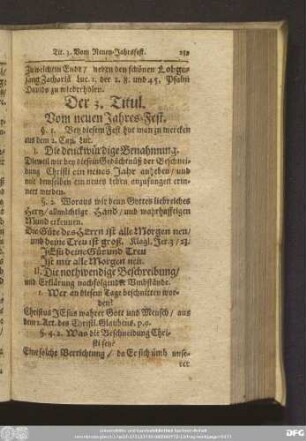 Tit. 3. Vom Neuen-Jahresfest.
Zu welchem Ende / neben den schönen Lobge-
sang Zachariä Luc. 1. der 2. 8. und 45. Psalm
Davids zu wiederholen.
Der 3. Titul.
Vom neuen Jahres-Fest.
§. 1. Bey diesem Fest hat man zu mercken
aus dem 2. Cap. Luc.
I. Die denckwürdige Benahmung.
Dieweil wir bey diesem Gedächtnüß der Beschnei-
dung Christi ein neues Jahr anheben / und
mit demselben ein neues Leben anzufangen erin-
nert werden.
§. 2. Woraus wir dein Gottes liebreiches
Hertz / allmächtige Hand / und warhafftigen
Mund erkennen.
Die Güte des HErrn ist alle Morgen neu,
und deine Treu ist groß. Klagl. Jer. 3 / 23.
JEsu deine Güt und Treu
Ist mir alle Morgen neu.
II. Die nothwendige Beschreibung /
und Erklärung nachfolgender Umbstände.
1. Wer an diesem Tage beschnitten wor-
den?
Christus JEsus wahrer Gott und Mensch / aus
dem 2. Art. des Christl. Glaubens, p.
§. 2. Was die Beschneidung Chri-
sti sey?
Eine solche Verrichtung / da Er sich umb unse-
rer